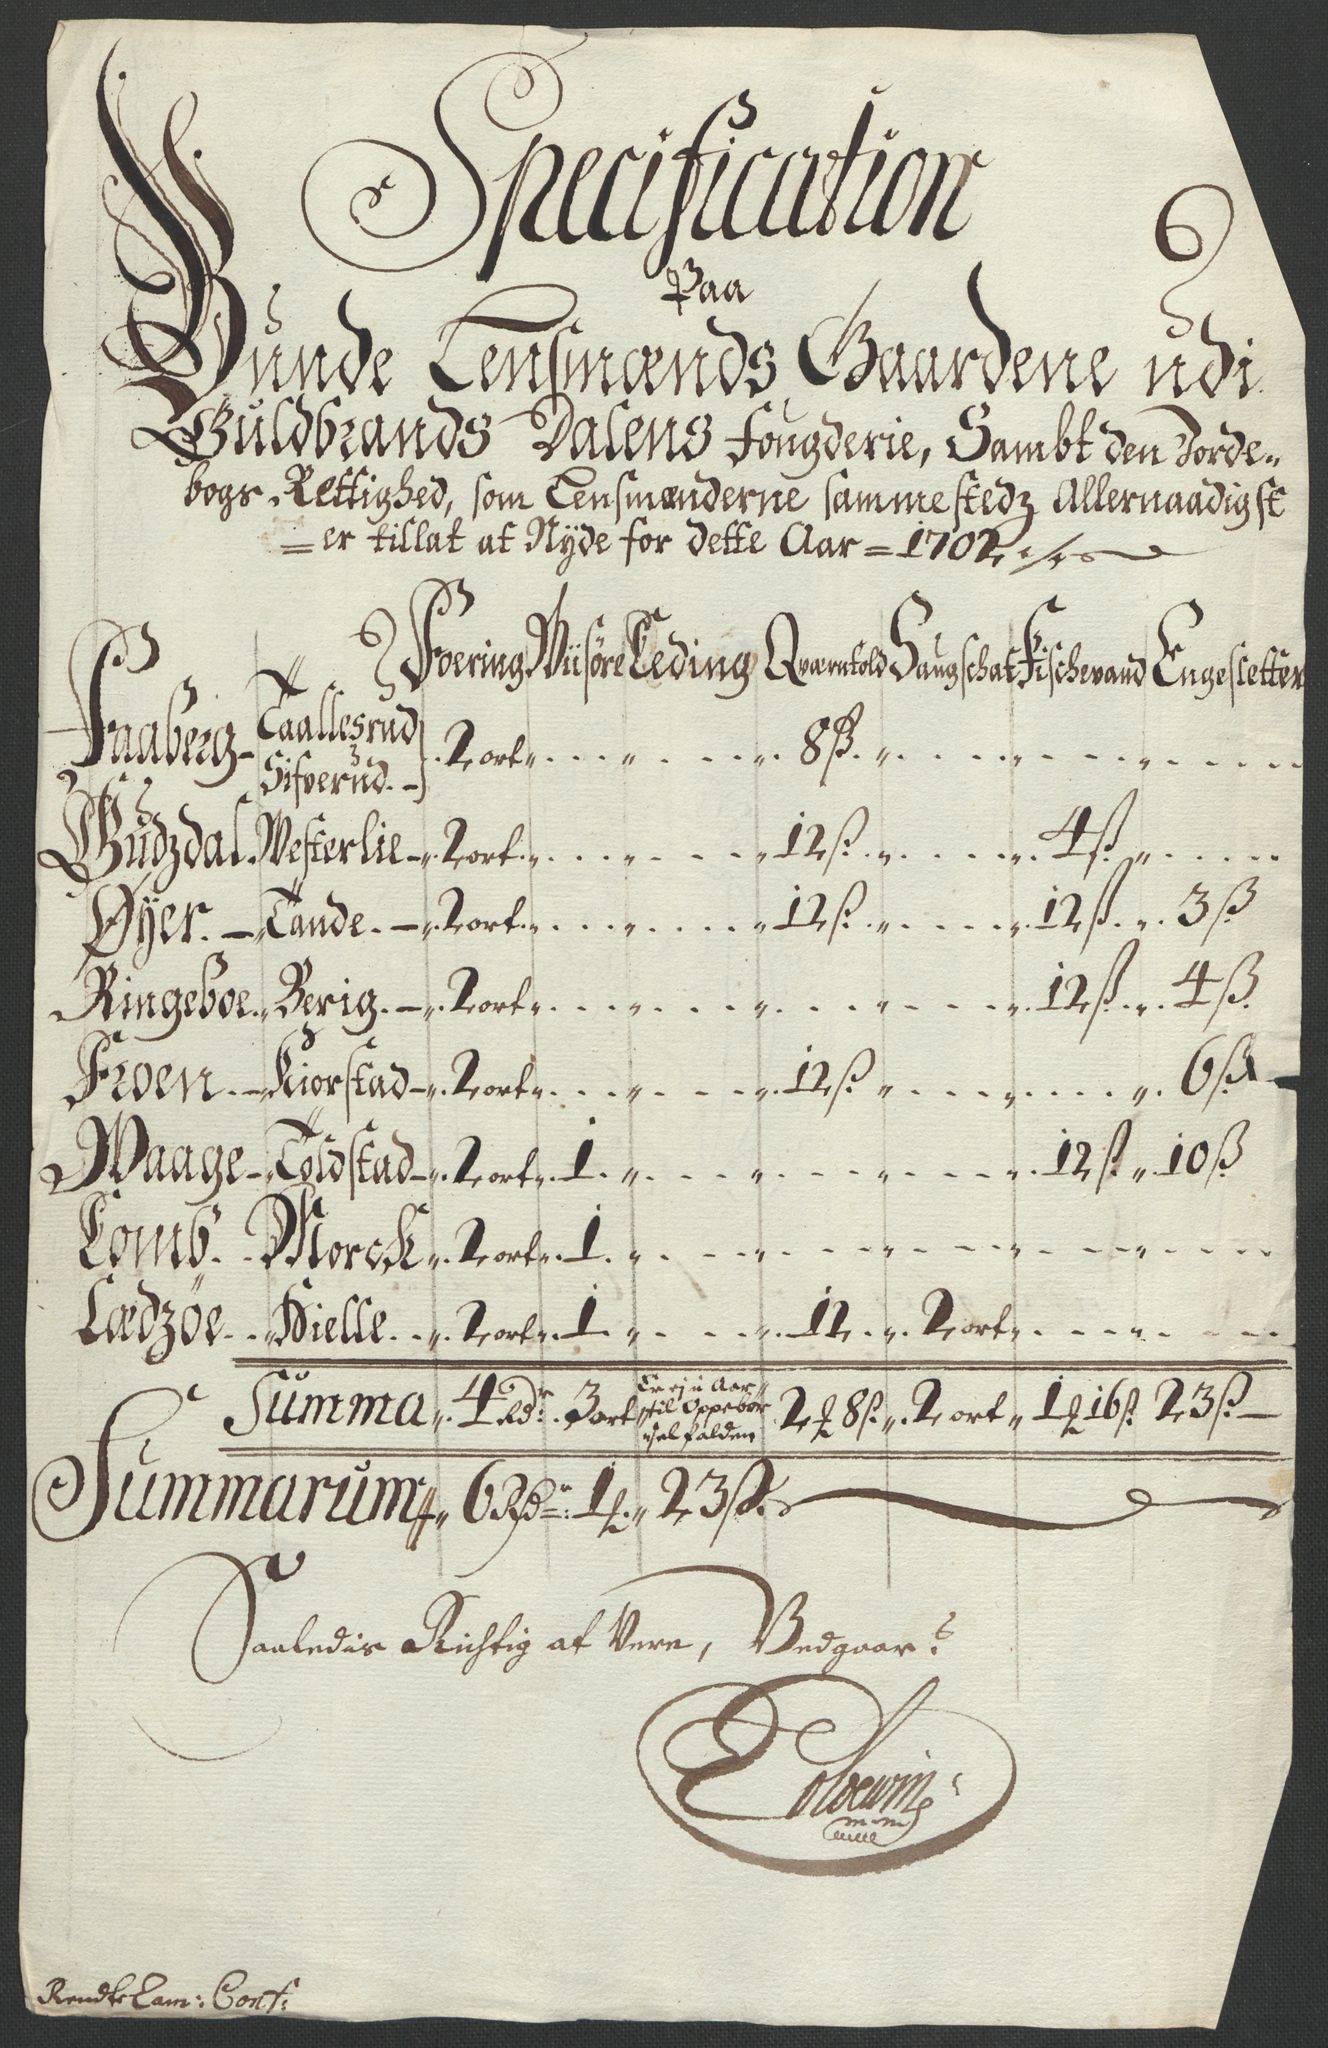 Specification
Paa
Bunde Lensmænds Gaardene udi
Guldbrands Dalens Fougderie, Sambt den Jorde-
bogs Rettighed, som Lensmænderne sammestedz Allernaadigst
= er tillat at Nyde for dette Aar = 1702
Foering Wiisøre Leding Qværntold Saugschat Fischevand Engesletter
Faaberg - Taallesrud Sifverud - 2 ort 8 ß
Gudzdal Westerlie - 2 ort 12 ß 4 ß
Øyer - Tande - 2 ort 12 ß 12 ß 3 ß
Ringeboe Berig - 2 ort 12 ß 4 ß
Froen - Kiorstad - 2 ort 12 ß 6 ß
Waage - Toldstad - 2 ort 1 12 ß 10 ß
Lomb Morck 2 ort 1
Lædzöe Hielle 2 ort 1 12 2 ort
Summa 4 Rdr 3 ort Er ej i Aar til Oppebørsel falden 2 ₰ 8 ß 2 ort 1 ₰ 16 ß 23 ß
Summarum 6 Rdr: 1 ₰ 23 ß
Saaledis Richtig at Vere, Vedgaar
m m
Rendte Cam: Cont: